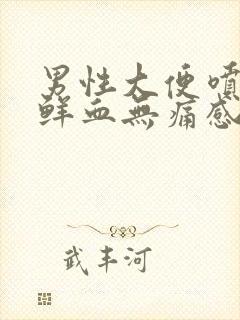 男性大便噴
鮮血無痛感
武丰河